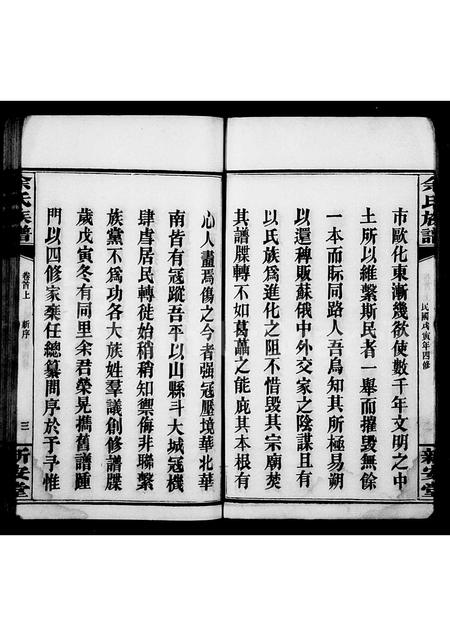 余氏族譜
民國戊寅年四修
新安堂
市歐化東漸幾欲使數千年文明之中
土所以維繫斯民者一舉而摧毀無餘
一本而眎同路人吾烏知其所極易朔
以還稗販蘇俄中外交家之陰謀且有
以氏族爲進化之阻不惜毀其宗廟焚
其譜牒轉不如葛藟之能庇其本根有
心人盡焉傷之今者强寇壓境華北華
南皆有寇蹤吾平以山縣斗大城寇機
肆虐居民轉徙始稍稍知禦侮非聯繫
族黨不爲功各大族姓羣議創修譜牒
歲戊寅冬有同里余君榮晃攜舊譜踵
門以四修家乘任總纂問序於于予惟
余氏族譜
卷首上
新序
三
新安堂